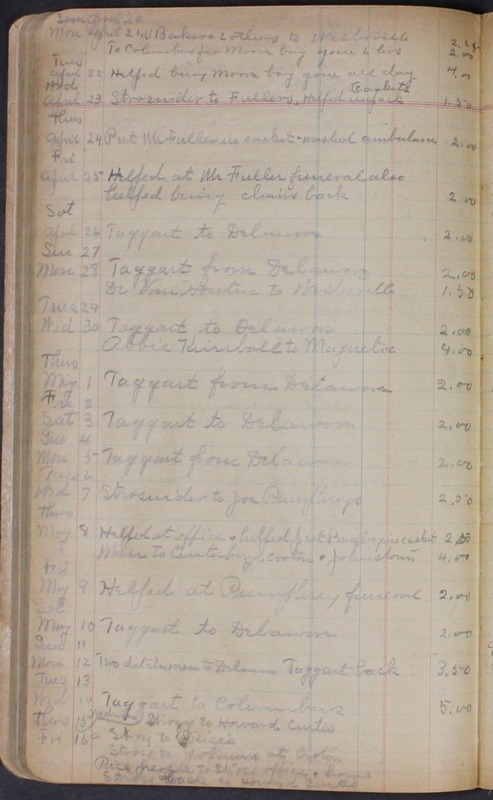 Sun April 20
Mon April 21 J Baker & 2 others to Westerville 2.25
To Columbus for Moore boy gone 6 hrs 2.00
Tues
April 22 Helped bury Moore boy gone all day 4.00
Wed caskets
April 23 Strosnider to Fullers, Helped unpack 1.50
Thus
April 24 Put Mr Fuller in casket - washed ambulance 2.00
Fri
April 25 Helfed at Mr Fuller funeral also
helfed bring chairs back 2.00
Sat
April 26 Taggart to Delaware 2.00
Sun 27
Mon 28 Taggart from Delaware 2.00
Dr Van Houtin to Westerville 1.50
Tues 29
Wed 30 Taggart to Delaware 2.00
Abbie Kimball to Magnetic 4.00
Thus
May 1 Taggart from Delaware 2.00
Fri 2
Sat 3 Taggart to Delaware 2.00
Sun 4
Mon 5 Taggart from Delaware 2.00
Tues 6
Wed 7 Strosnider to Joe Pumphreys 2.50
Thus
May 8 Helfed at office & helfed put Pumphrey in casket 2.50
Men to Centerburg, croton & Johnstown 4.00
Fri
May 9 Helfed at Pumphrey funeral 2.00
Sat
May 10 Taggart to Delaware 2.00
Sun 11
Mon 12 Two ditch men to Delaware Taggart back 3.50
Tues 13
Wed 14 Taggart to Columbus 5.00
Thus 15 Story to Howard Curtis
Fri 16 Story to Price's
Strong to at Croton
Rice people to Story office & home
Strong back to Howard Curtis